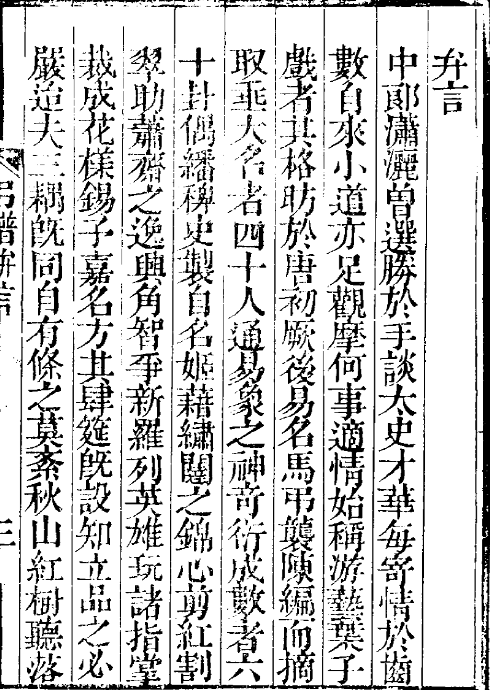 弁言
中郎瀟灑曾選勝於手談太史才華每寄情於齒
數自來小道亦足觀摩何事適情始稱游藝葉子
戲者其格昉於唐初厥後易名馬弔襲陳編而摘
取垂大名者四十人通易象之神奇衍成數者六
十卦偶繙稗史製自名姬藉繡闥之錦心剪紅割
翠助蕭齋之逸興角智爭新羅列英雄玩諸指掌
裁成花樣錫予嘉名方其肆筵旣設知立品之必
嚴迨夫三耦旣同自有條之莫紊秋山紅樹聽落
弔譜弁言